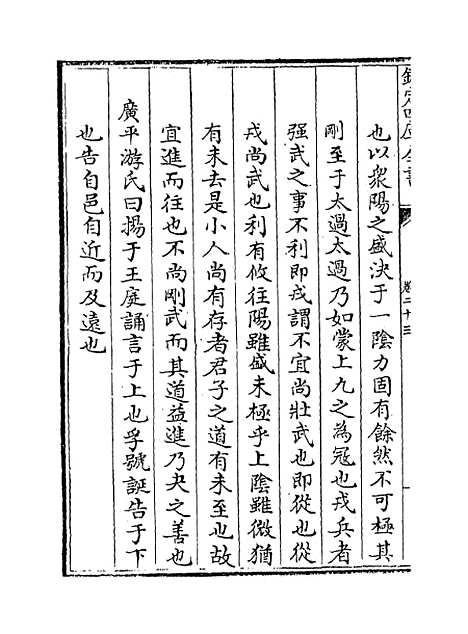 欽定四庫全書
卷二十三
也以衆陽之盛決于一陰力固有餘然不可極其
剛至于太過太過乃如蒙上九之為冦也戎兵者
强武之事不利即戎謂不宜尚壯武也即從也從
戎尚武也利有攸往陽雖盛未極乎上陰雖微猶
有未去是小人尚有存者君子之道有未至也故
宜進而往也不尚剛武而其道益進乃夬之善也
廣平游氏曰揚于王庭誦言于上也孚號誕告于下
也告自邑自近而及遠也